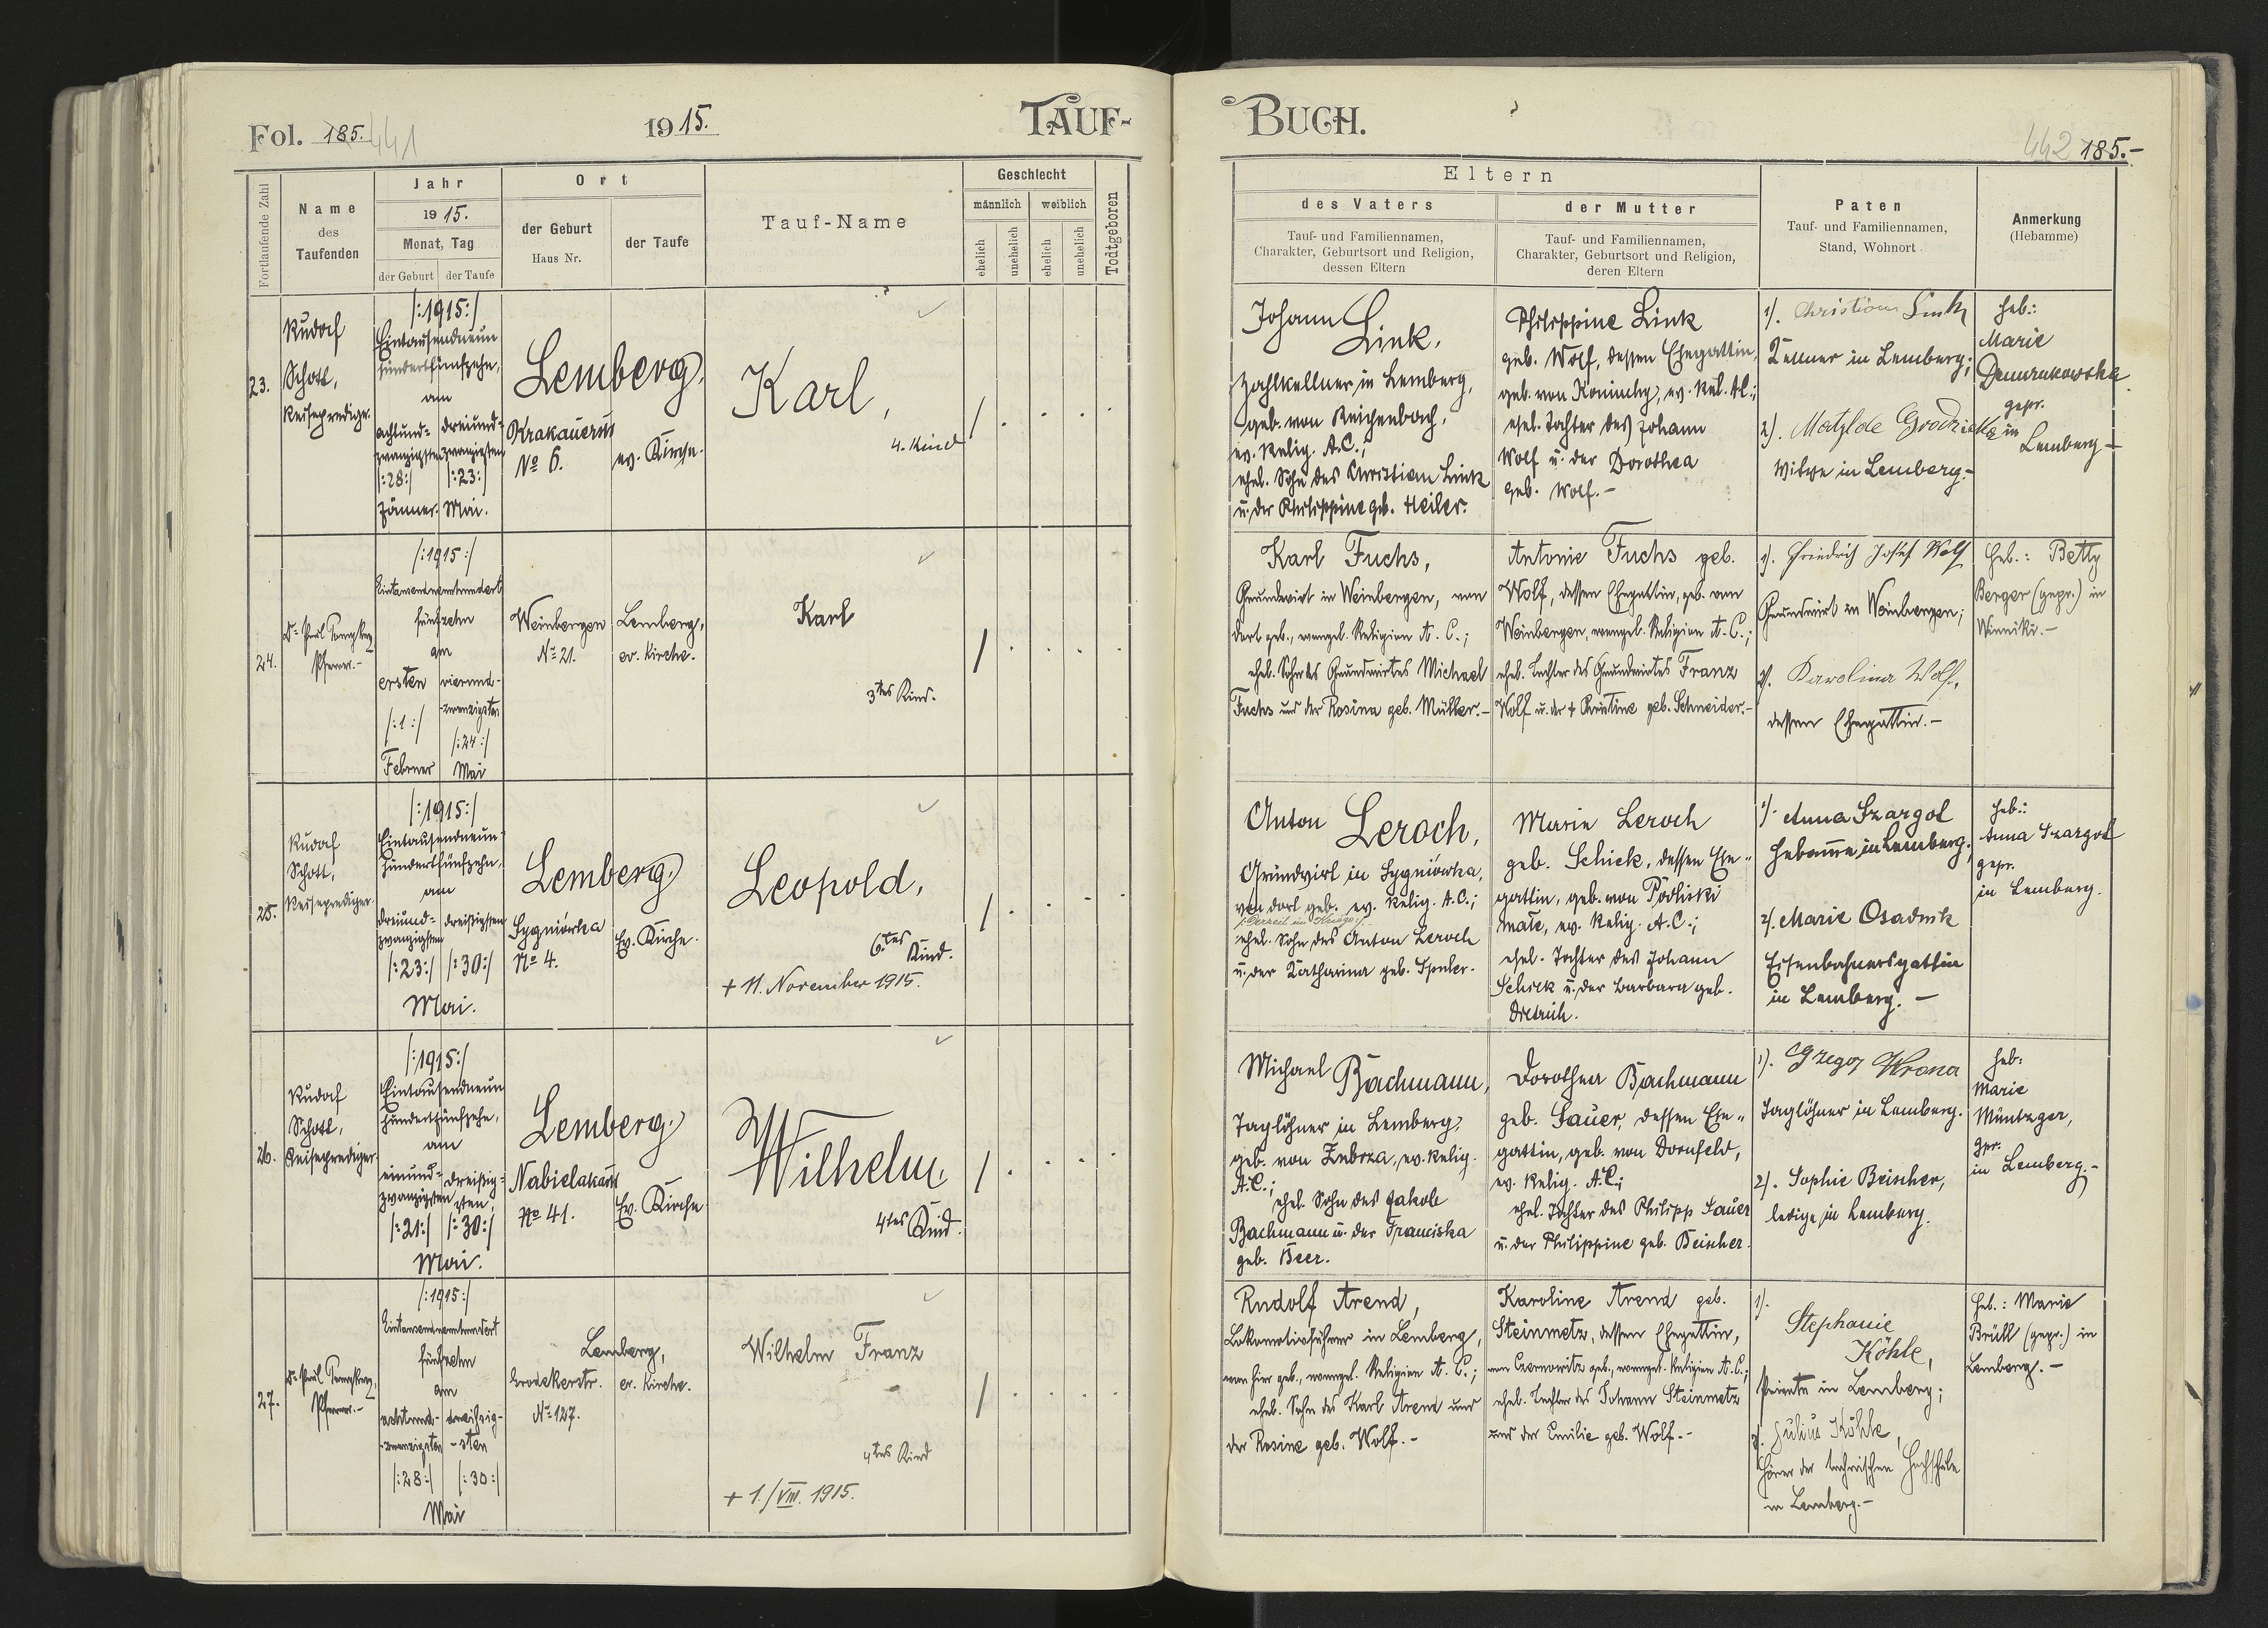 Fol. 185. 441
1915.
TAUF-
Fortlaufende Zahl
Name
des
Taufenden
Jahr
1915.
Monat, Tag
der Geburt
der Taufe
Ort
der Geburt
Haus Nr.
der Taufe
Tauf-Name
Geschlecht
männlich
weiblich
ehelich
unehelich
ehelich
unehelich
Todtgeboren
23.
Rudolf
Schott,
Reiseprediger.
/:1915:/
Eintausendneun
hundertfünfzehn,
am
achtund-
zwanzigsten
/:28:/
Jänner.
dreiund-
zwanzigsten
/:23:/
Mai.
Lemberg,
Krakauerstr
No 6.
ev. Kirche.
Karl,
4. Kind
24.
Dr Paul
Pfarrer.-
/:1915:/
Eintausendneunhundert
fünfzehn
am
ersten
/:1:/
Februar
vierund-
-zwanzigsten
/:24:/
Mai
Weinbergen
No 21.
Lemberg,
ev. Kirche.
Karl
3tes Kind.
25.
Rudolf
Schott,
Reiseprediger.
/:1915:/
Eintausendneun
hundertfünfzehn,
am
dreiund-
zwanzigsten
/:23:/
dreißigsten
/:30:/
Mai.
Lemberg
Sygniówka
No 4.
Ev. Kirche.
Leopold,
6.tes
Kind.
+ 11. November 1915.
26.
Rudolf
Schott,
Reiseprediger.
/:1915:/
Eintausendneun
hundertfünfzehn,
am
einund-
zwanzigsten
/:21:/
dreißig-
sten,
/:30:/
Mai.
Lemberg
No 41.
Ev. Kirche
Wilhelm,
4tes Kind.
27.
Dr Paul
Pfarrer.-
/:1915:/
Eintausendneunhundert
fünfzehn
am
achtund-
-zwanzigsten
/:28:/
dreißig-
-sten
/:30:/
Mai
Lemberg,
Grodekerstr.
No 127.
ev. Kirche.
Wilhelm Franz
4tes Kind
+ 1./VIII. 1915.
BUCH.
442 185.-
Eltern
des Vaters
Tauf- und Familiennamen,
Charakter, Geburtsort und Religion,
dessen Eltern
der Mutter
Tauf- und Familiennamen,
Charakter, Geburtsort und Religion,
deren Eltern
Paten
Tauf- und Familiennamen,
Stand, Wohnort
Anmerkung
(Hebamme)
Johann
Link,
Zahlkellner in Lemberg,
geb. von Reichenbach,
ev. Relig. A.C.;
ehel. Sohn des Christian Link
u. der Philippine geb. Heiler.
Philippine Link
geb. Wolf, dessen Ehegattin,
geb. von ev. Rel. A.C.;
ehel. Tochter des Johann
Wolf u. der Dorothea
geb. Wolf.-
1). Christian Link
Kellner in Lemberg;
2). Matylde Grodzicka
Witwe in Lemberg.-
Heb.:
Marie
gepr.
in
Lemberg -
Karl Fuchs,
Grundwirt in Weinbergen, von
dort geb., evangel. Religion A. C.;
ehel. Sohn des Grundwirtes Michael
Fuchs und der Rosina geb. Müller.-
Antonie Fuchs geb.
Wolf, dessen Ehegattin, geb. von
Weinbergen, evangel. Religion A. C.;
ehel. Tochter des Grundwirtes Franz
Wolf u. der + Christine geb. Schneider.-
1). Friedrich Josef Wolf
Grundwirt in Weinbergen;
2). Karolina Wolf,
dessen Ehegattin.-
Heb.: Betty
Berger (gepr.) in
Winniki.-
Anton Leroch,
Grundwirt in Sygniówka,
von dort geb. ev. Relig. A.C.;
/:Derzeit im Kriege:/
ehel. Sohn des Anton Leroch
u. der Katharina geb. Spuler.
Marie Leroch
geb. Schick, dessen Ehe-
gattin, geb. von Podliski
male, ev. Relig. A.C.;
ehel. Tochter des Johann
Schick u. der Barbara geb.
Dietrich.
1). Anna Szargol
Hebamme in Lemberg;
2). Marie Osadnik
Eisenbahnersgattin
in Lemberg. -
Heb.:
Anna Szargol
gepr.
in Lemberg.
Michael Bachmann,
Taglöhner in Lemberg,
geb. von Zubrza, ev. Relig.
A.C.;
ehel. Sohn des Jakob
Bachmann u. der Franciska
geb. Beer.
Dorothea Bachmann
geb. Sauer, dessen Ehe-
gattin, geb. von Dornfeld,
ev. Relig. A.C.;
ehel. Tochter des Philipp Sauer
u. der Philippine geb. Beischer.
1). Grzegorz Wrona
Taglöhner in Lemberg.
2). Sophie Beischer,
ledig, in Lemberg.
Heb:
Marie
Müntzger,
gpr.
in Lemberg.-
Rudolf Arend,
Lokomotivführer in Lemberg,
von hier geb., evangel. Religion A. C.;
ehel. Sohn des Karl Arend und
der Rosine geb. Wolf.-
Karoline Arend geb.
Steinmetz, dessen Ehegattin,
von Czernowitz geb., evangel. Religion A.C.;
ehel. Tochter des Johann Steinmetz
und der Emilie geb. Wolf.-
1).
Stephanie
Köhle,
Private in Lemberg;
2). Julius Köhle,
Hörer der technischen Hochschule
in Lemberg.-
Heb.: Marie
Brükl (gepr.) in
Lemberg.-